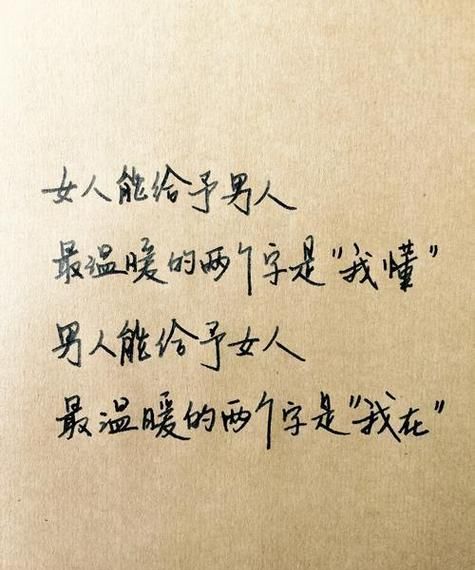 女人能给予男人
最温暖的两个字是"我懂"
男人能给予女人
最温暖的两个字是"我在"